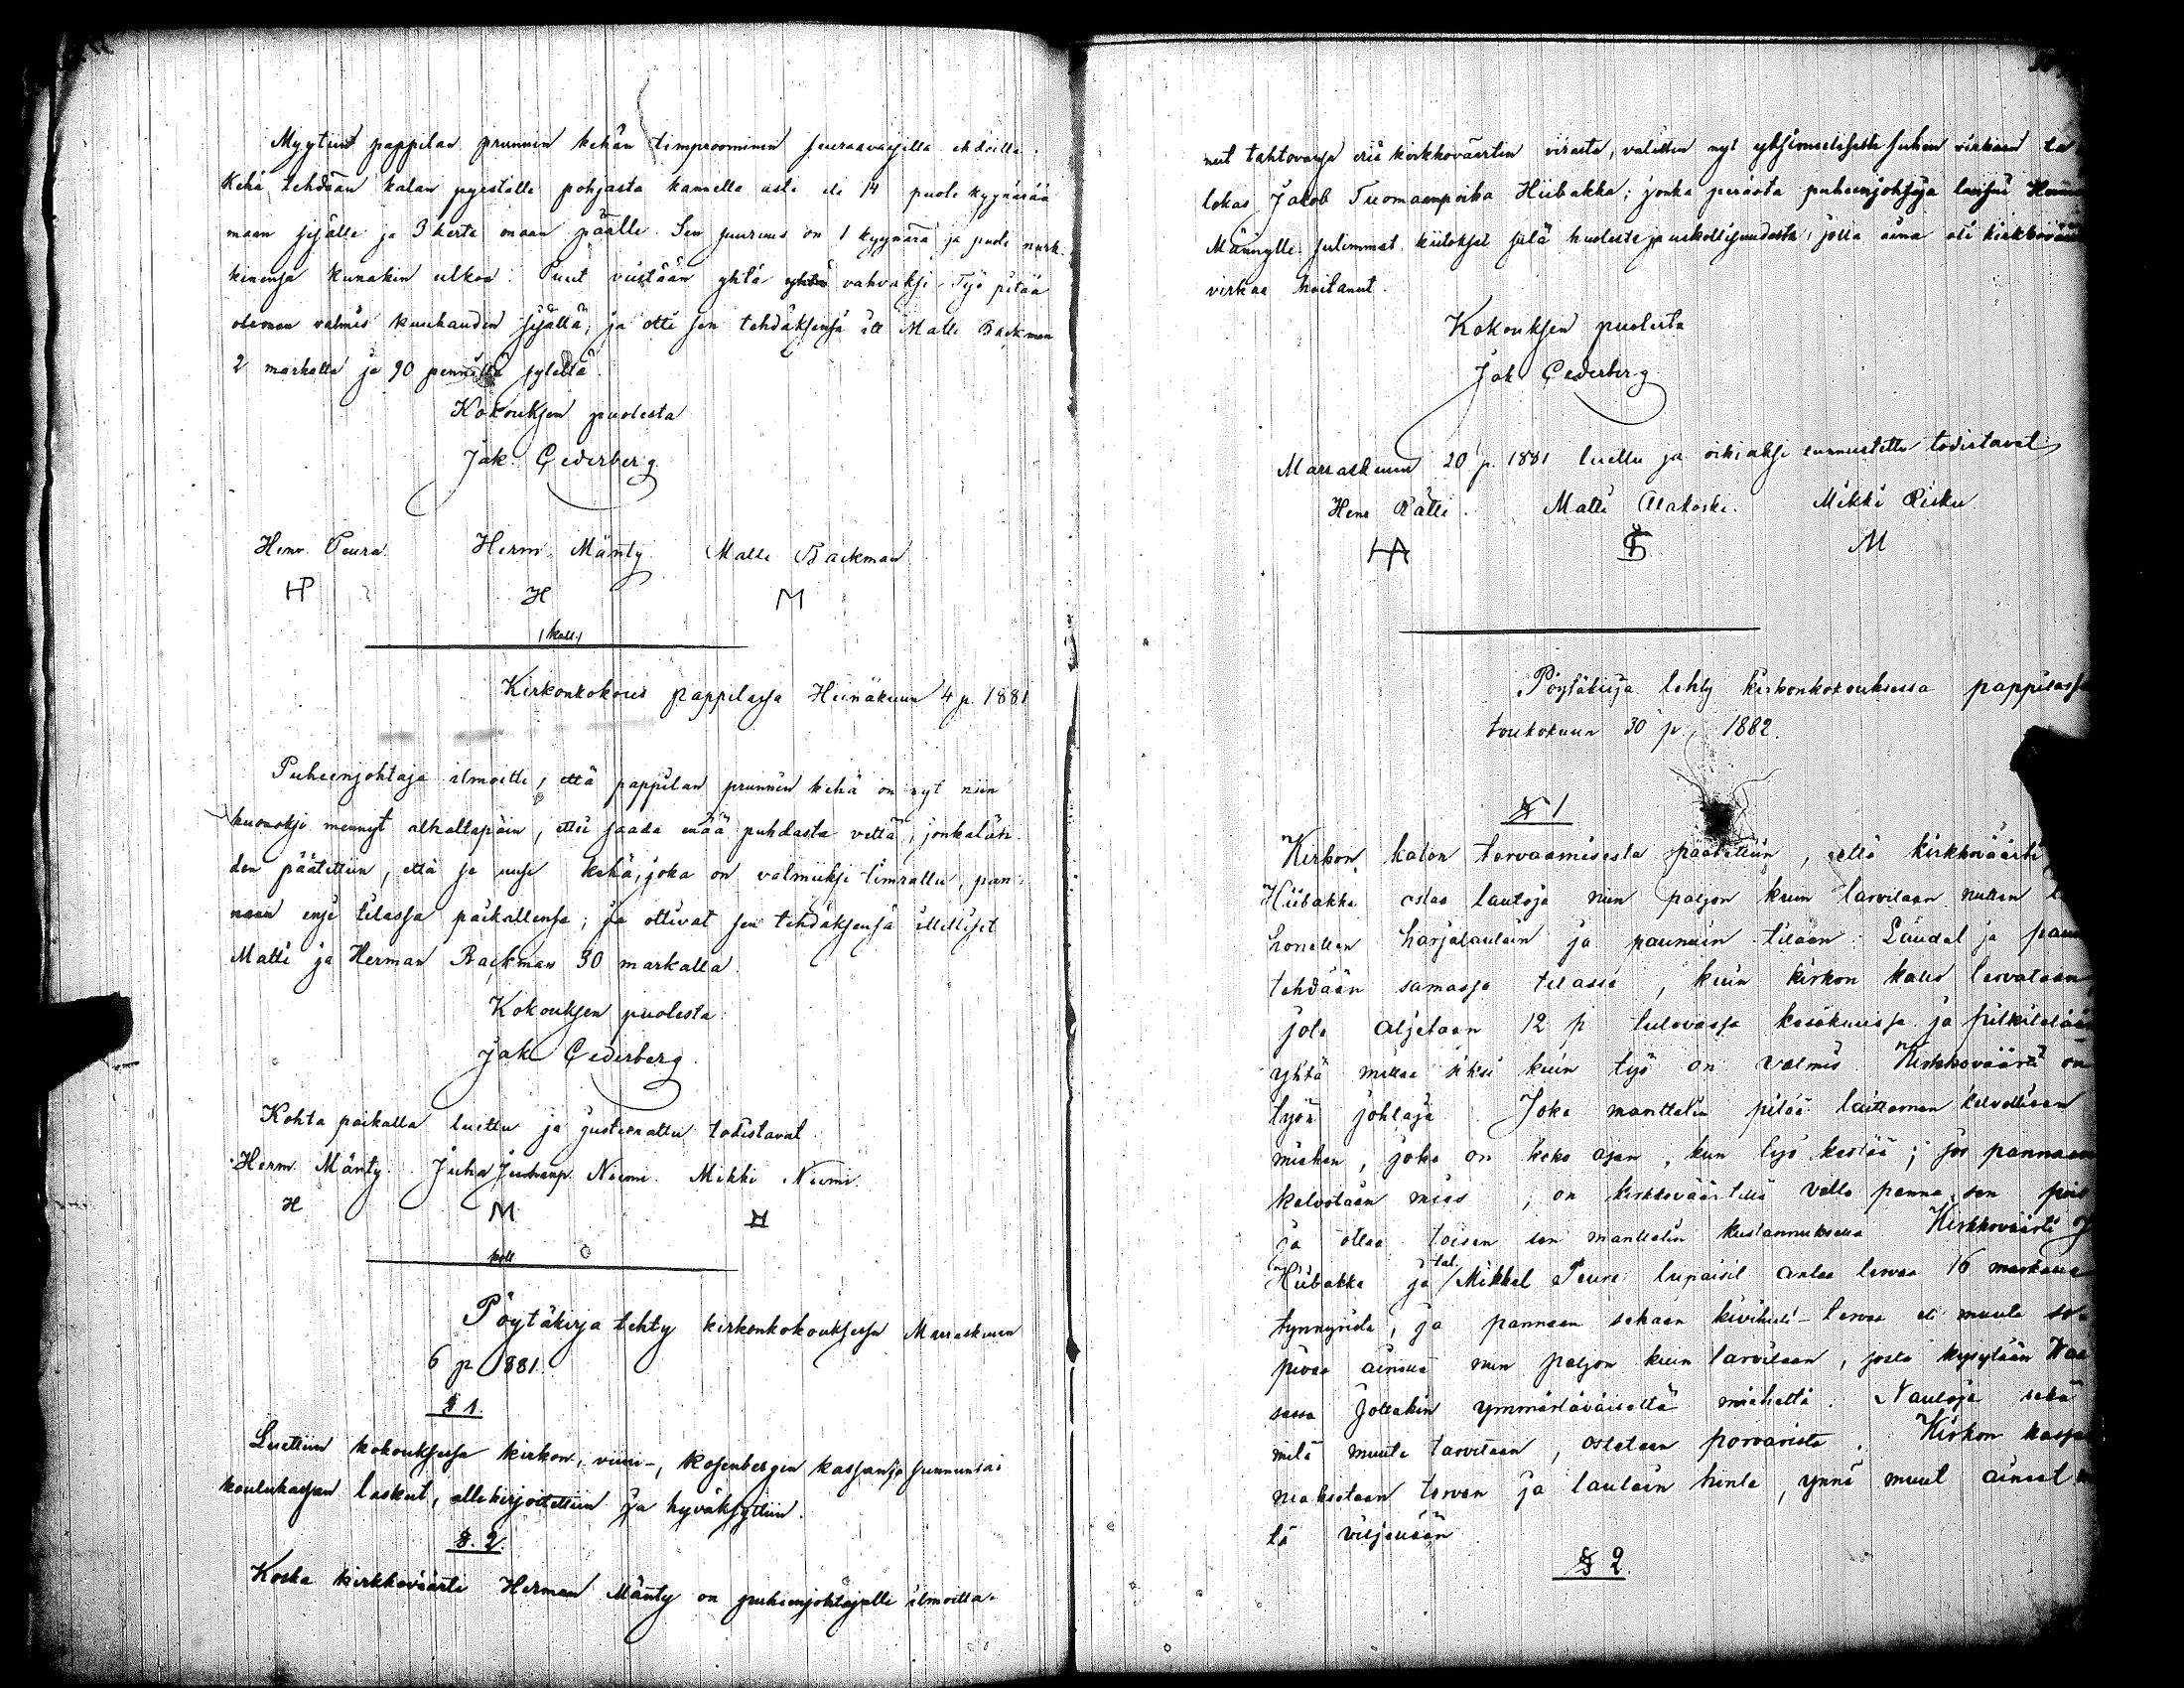 Myytiin pappilan prunnin kehän timproominen seuraavaisilla ehdoilla.
Kehä tehdään kalan pyrstölle pohjasta kannelle asti eli 14 puoli kyynärää
maan sisälle ja 3 kerta maan päälle. Sen suuruus on 1 kyynärä ja puoli nurk-
kinensa kunakin ulkoa. Puut veistään yhtä vahvaksi. Työ pitää
oleman valmis kuuhauden sisällä, ja otti sen tehdäksensä itl Matti Backman
2 markalla ja 90 pennillä syleltä.
Kokouksen puolesta
Jak Cederberg
Henr. Peura Herm. Mänty Matti Backman
HP H M
koll.
Kirkonkokous pappilassa Heinäkuun 4 p. 1881
Puheenjohtaja ilmoitti, että pappilan prunnin kehä on nyt niin
huonoksi mennyt alhaltapäin, ettei saada enää puhdasta vettä, jonkatäh-
den päätettiin, että se uusi kehä, joka on valmiiksi timrattu, pan-
naan ensi tilassa paikallensa; ja ottivat sen tehdäksensä itselliset
Matti ja Herman Backman 30 markalla
Kokouksen puolesta:
Jak Cederberg.
Kohta paikalla luettu ja justeerattu todistavat
Herm. Mänty. Juha Juhanp. Niemi. Mikki Niemi.
H M H
koll
Pöytäkirja tehty kirkonkokouksessa Marraskuun
6 p. 1881.
§ 1.
Luettiin kokouksessa kirkon-, viini-, Rosenbergen kassan ja sunnuntai
koulukassan laskut, allekirjoitettiin ja hyväksyttiin.
§. 2.
Koska kirkkoväärti Herman Mänty on puheenjohtajalle ilmoitta-
nut tahtovansa eriä kirkkoväärtin virasta, valittiin nyt yksimielisesti siihen virkaan ta
lokas Jakob Tuomaanpoika Hiibakka; jonka perästä puheenjohtaja lausui Herman
Männylle sulimmat kiitokset siitä huolesta ja uskollisuudesta, jolla aina oli kirkkoväär
virkaa hoitanut.
Kokouksen puolesta
Jak Cederberg
Marraskuun 20 p. 1881 luettu ja oikiaksi tunnustettu todistavat;
Henr Rätti. Matti Alakoski. Mikki Risku
HA M
Pöytäkirja tehty kirkonkokouksessa pappilassa
toukokuun 30 p. 1882.
§ 1
Kirkon katon tervaamisesta päätettiin, että kirkkoväärti
Hiibakka ostaa lautoja niin paljon kuin tarvitaan
honellen harjalautain ja paunuin tilaan: Laudat ja
tehdään samassa tilassa, kuin kirkon katto tervataan
jota aljetaan 12 p tulevassa kesäkuussa ja pitkitetään
yhtä mittaa siksi kuin työ on valmis. Kirkkoväärti on
työn johtaja. Joka manttalin pitää laittaman kelvollisen
miehen, joka on koko ajan, kun työ kestää; jos pannaan
kelvotoin mies, on kirkkoväärtillä valta panna sen pois
ja ottaa toisen sen manttalin kustannuksella Kirkkoväärti J
Hiibakka ja tal. Mikkel Peura lupaisit antaa tervaa 16 markalla
tynnyristä, ja pannaan sekaan kivihiili-tervaa eli muuta so
pivaa ainetta niin paljon kuin tarvitaan, josta kysytään Waa
sassa Jollakin ymmärtäväiseltä mieheltä. Nauloja sekä
mitä muuta tarvitaan, ostetaan porvarista. Kirkon kassa
maksetaan tervan ja lautain hinta, ynnä muut aineet
tä viljellään
§ 2.